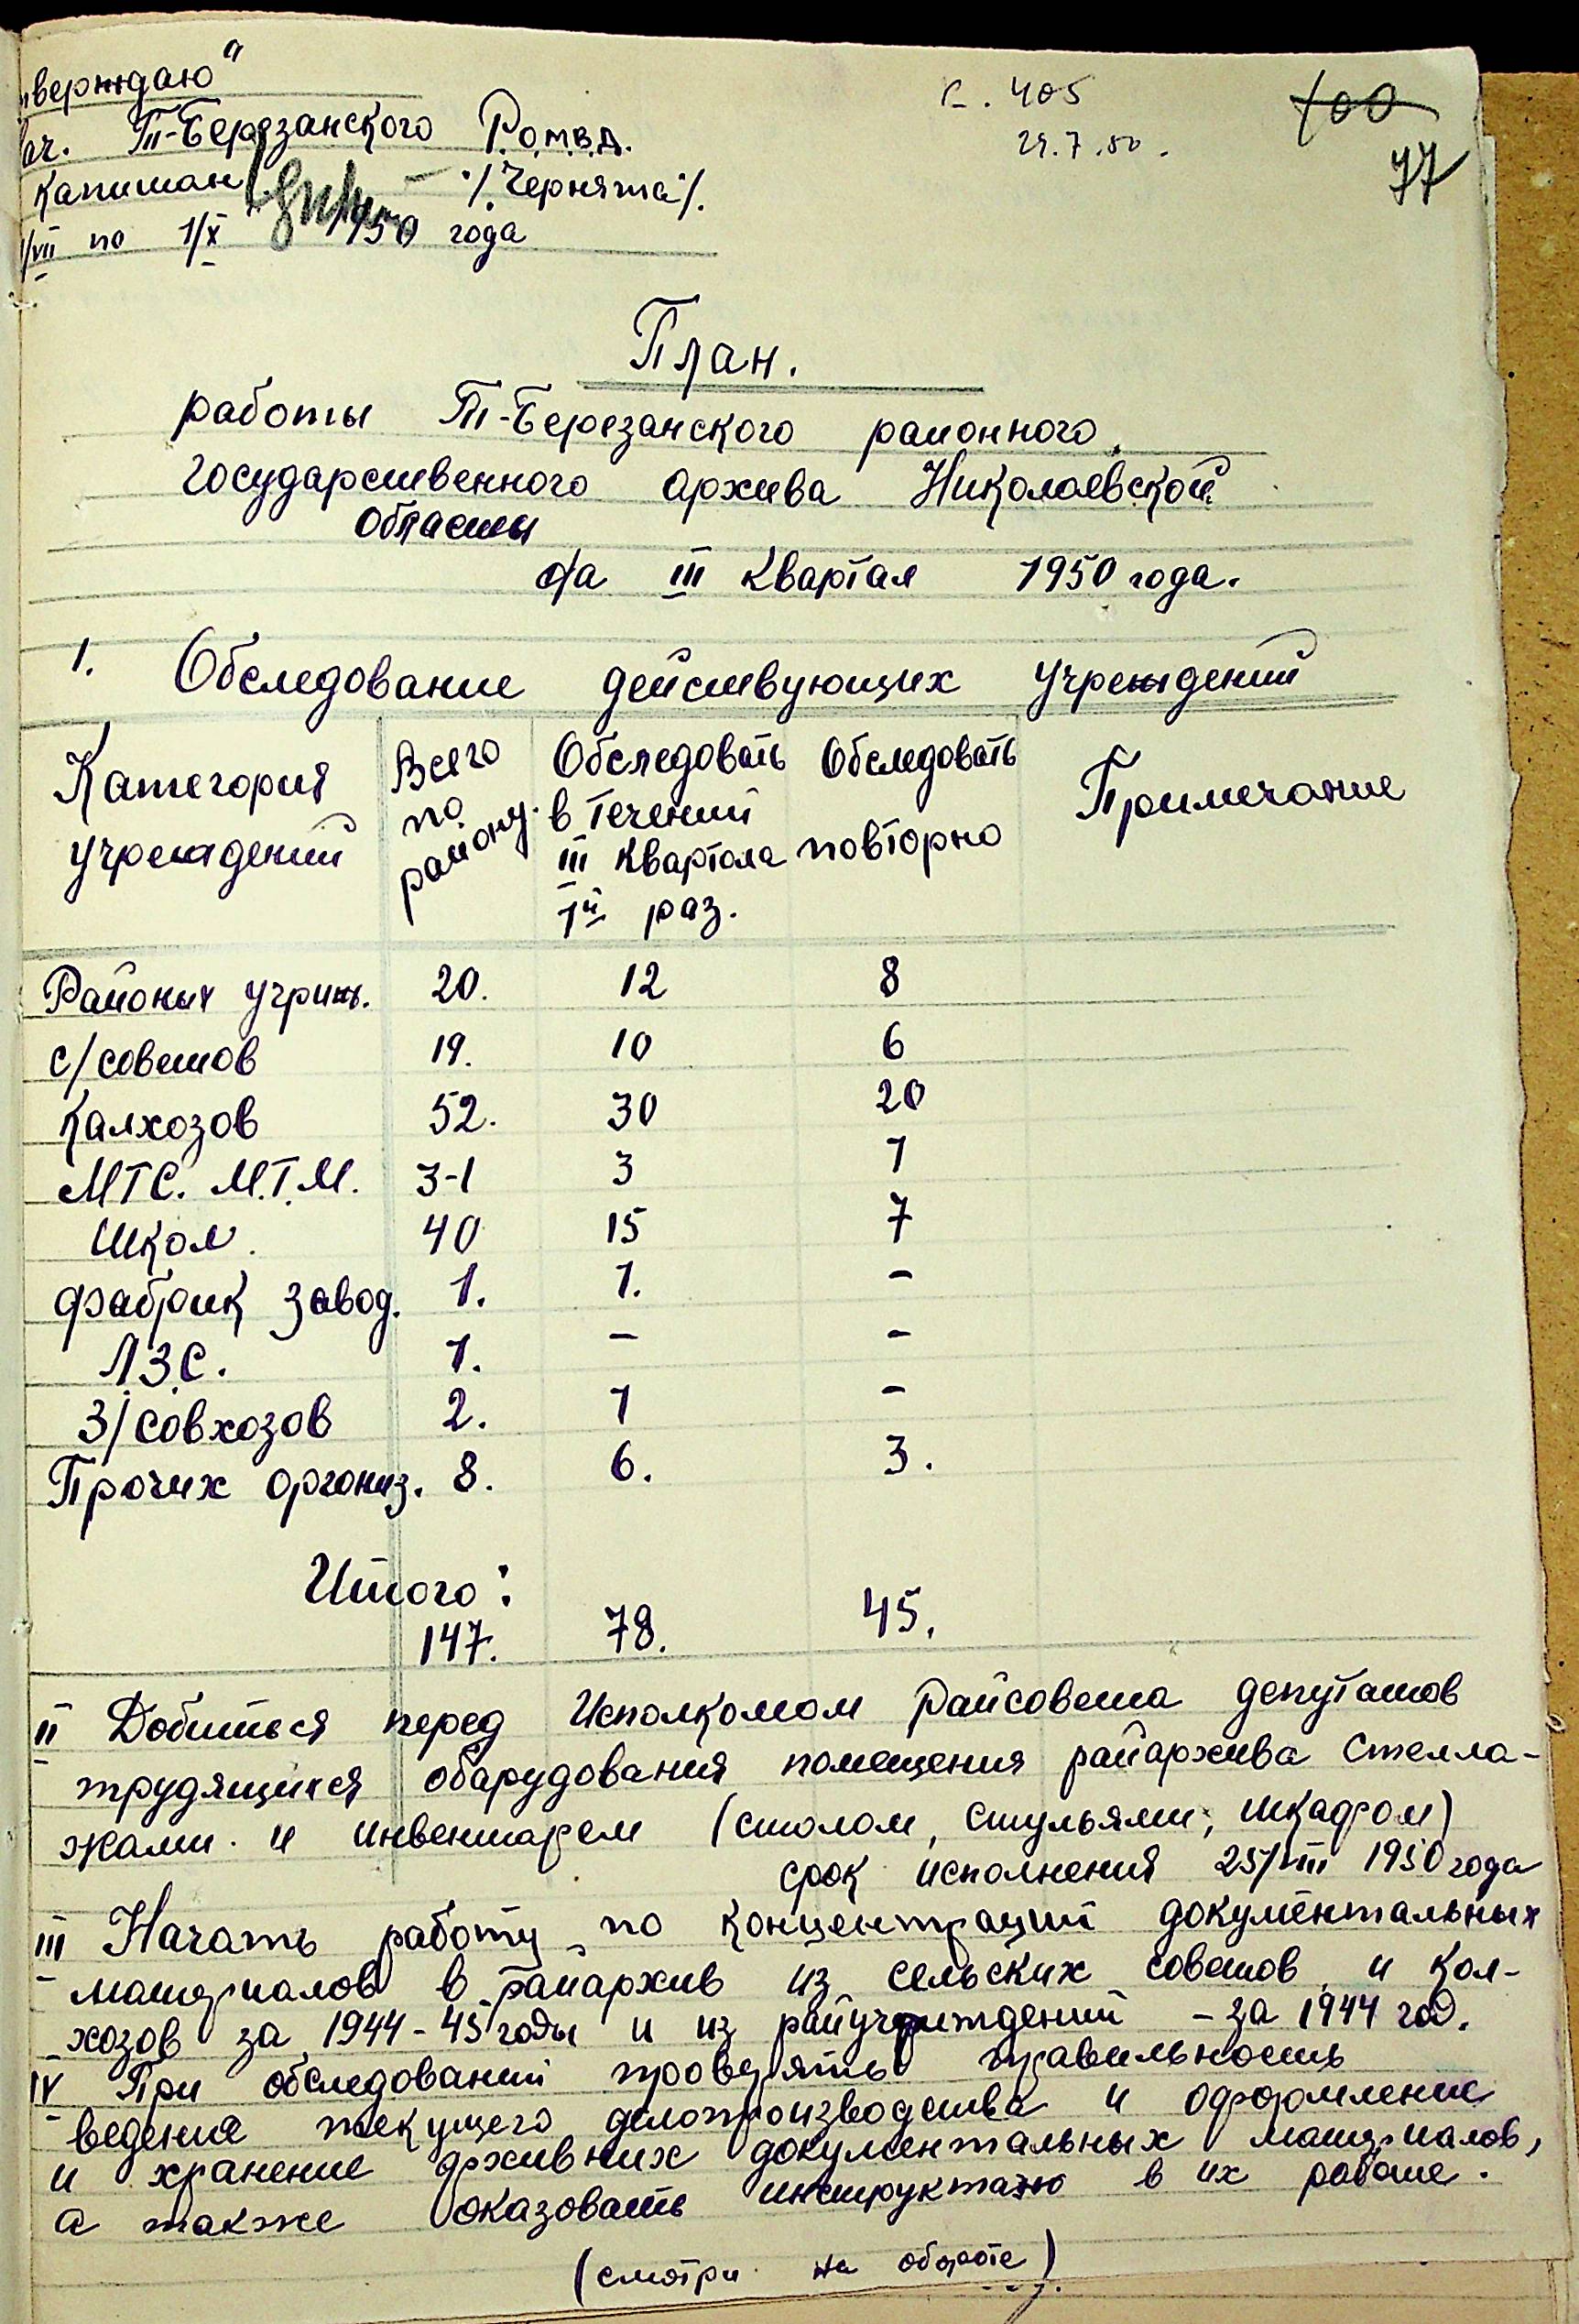 „верждаю"
ач. Т-Березанского Р.О.М.В.Д.
капитан - /Чернята/.
1/VII по 1/X 1950 года
с. 405
29.7.50.
100
77
План.
работы Т-Березанского районного
государственного архива Николаевской
области
на III квартал 1950 года.
1. Обследование действующих учреждений
Категория учреждений | Всего по району. | Обследовать в течении III квартала 1й раз. | Обследовать повторно | Примечание
Районых учриж. 20. 12 8
с/советов 19. 10 6
Калхозов 52. 30 20
МТС. М.Т.М. 3-1 3 1
Школ. 40 15 7
фабрик завод. 1. 1. -
Л.З.С. 1. - -
З/совхозов 2. 1 -
Прочих организ. 8. 6. 3.
Итого:
147. 78. 45.
II Добиться перед Исполкомом Райсовета депутатов
трудящихся обарудования помещения райархива стелла-
жами и инвентарем (столом, стульями, шкафом)
срок исполнения 25/VIII 1950 года
III Начать работу по концентрации документальных
материалов в райархив из сельских советов и кол-
хозов за 1944-45 годы и из райучриждений - за 1944 год.
IV При обследовании проверять правильность
ведения текущего делопроизводства и оформление
и хранение архивних документальных материалов,
а также оказовать инструктаж в их работе.
(смотри на обороте)